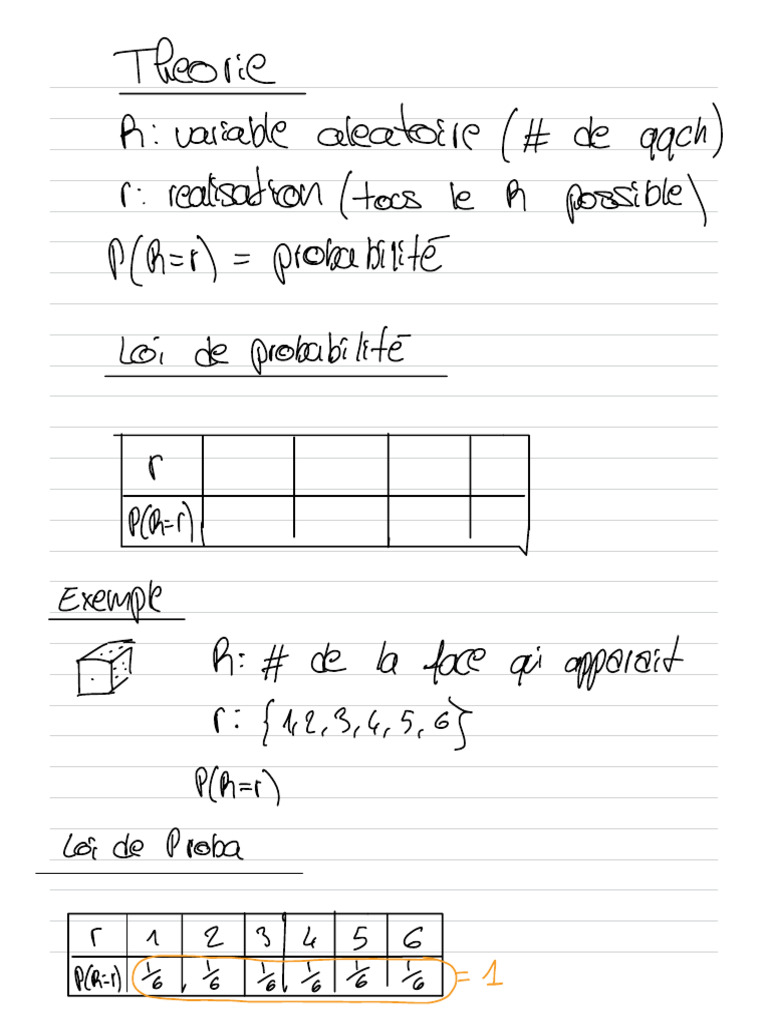 Theorie
R: variable aleatoire (# de qqch)
r: realisation (tocs le R possible)
P(R=r) = probabilité
Loi de probabilité
r
P(R=r)
Exemple
R: # de la face qi apparait
r: {1,2,3,4,5,6}
P(R=r)
Loi de Proba
r 1 2 3 4 5 6
P(R=r) 1/6 1/6 1/6 1/6 1/6 1/6 = 1